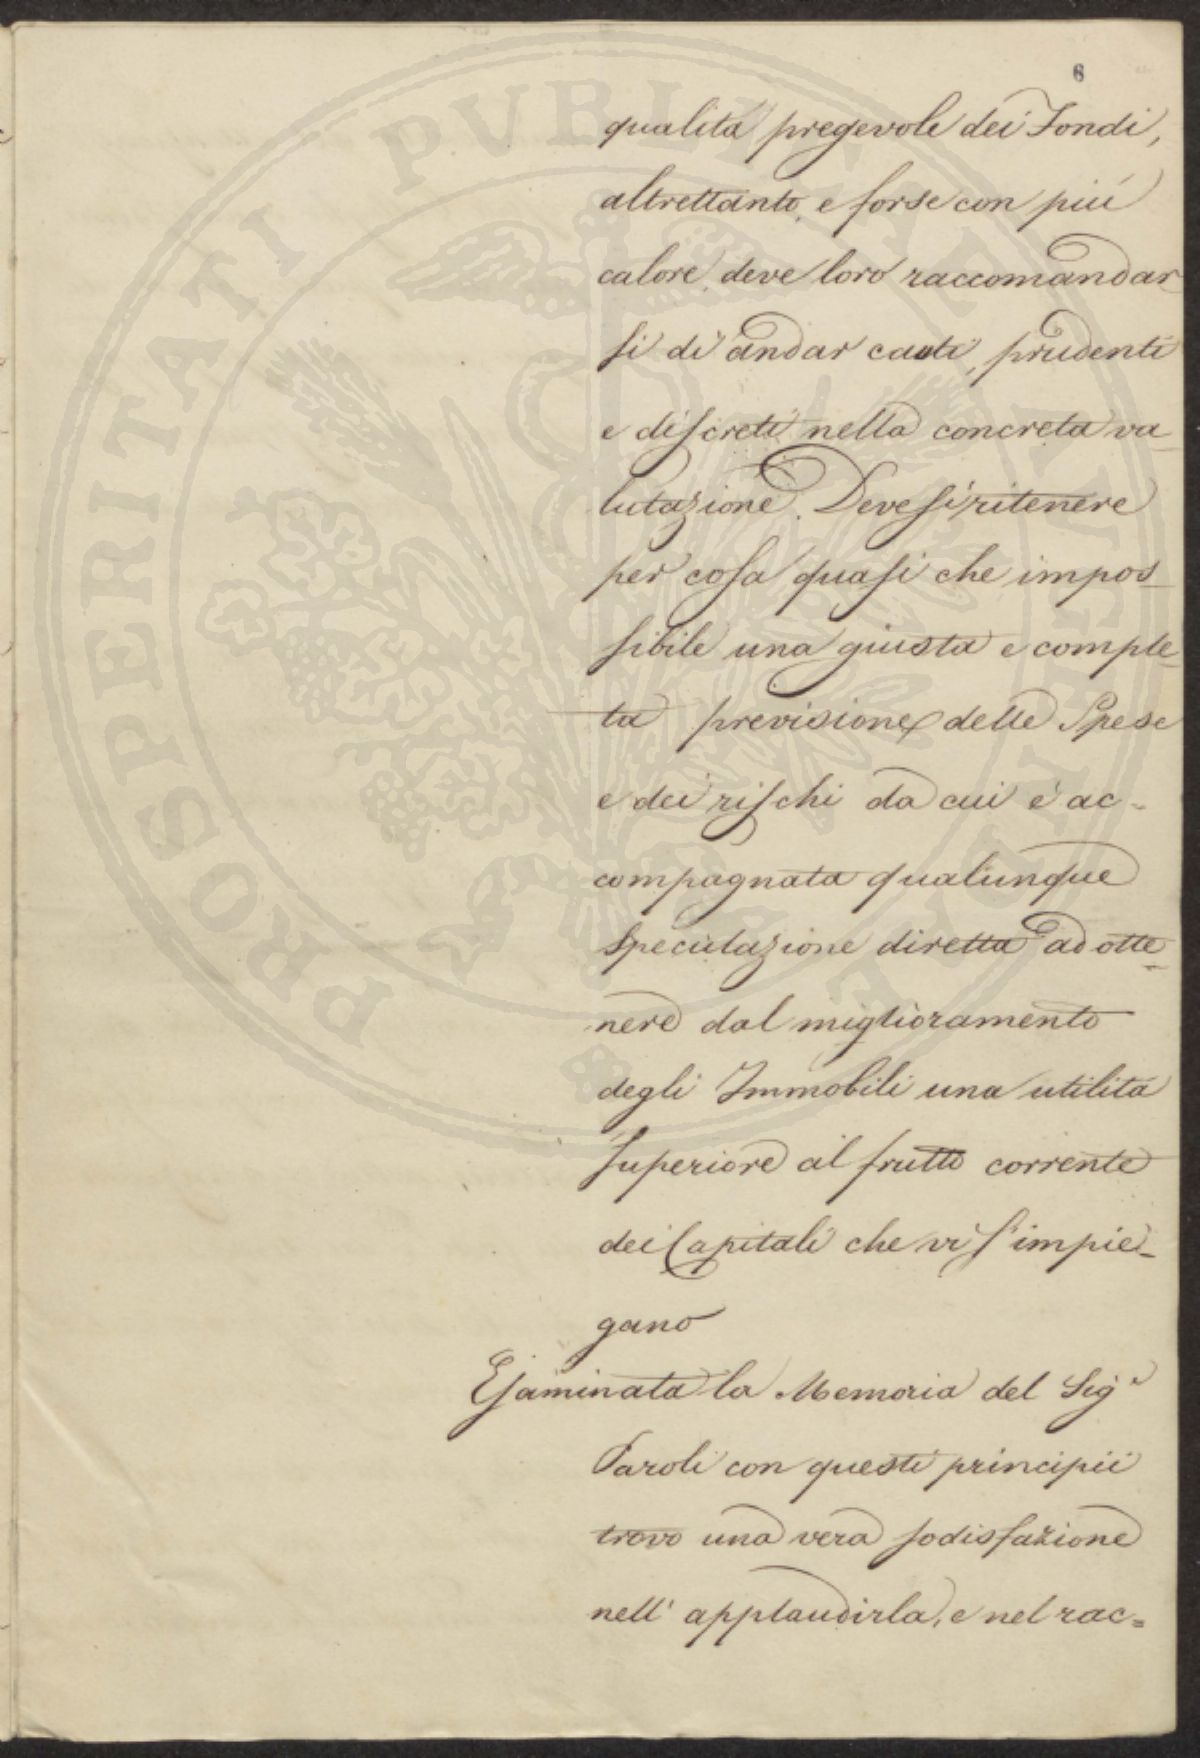 6
qualità pregevole dei Fondi,
altrettanto, e forse con più
calore, deve loro raccomandar_
si di andar cauti, prudenti
e discreti nella concreta va_
lutazione. Devesi ritenere
per cosa quasi che impos_
sibile una giusta e comple_
ta previsione delle Spese
e dei rischi da cui è ac=
compagnata qualunque
speculazione diretta ad otte_
nere dal miglioramento
degli Immobili una utilità
superiore al frutto corrente
dei Capitali che vi s'impie_
gano
Esaminata la Memoria del Sigr
Paroli con questi principii
trovo una vera sodisfazione
nell' applaudirla, e nel rac=
PROSPERITATI PVBLICAE AVGENDAE